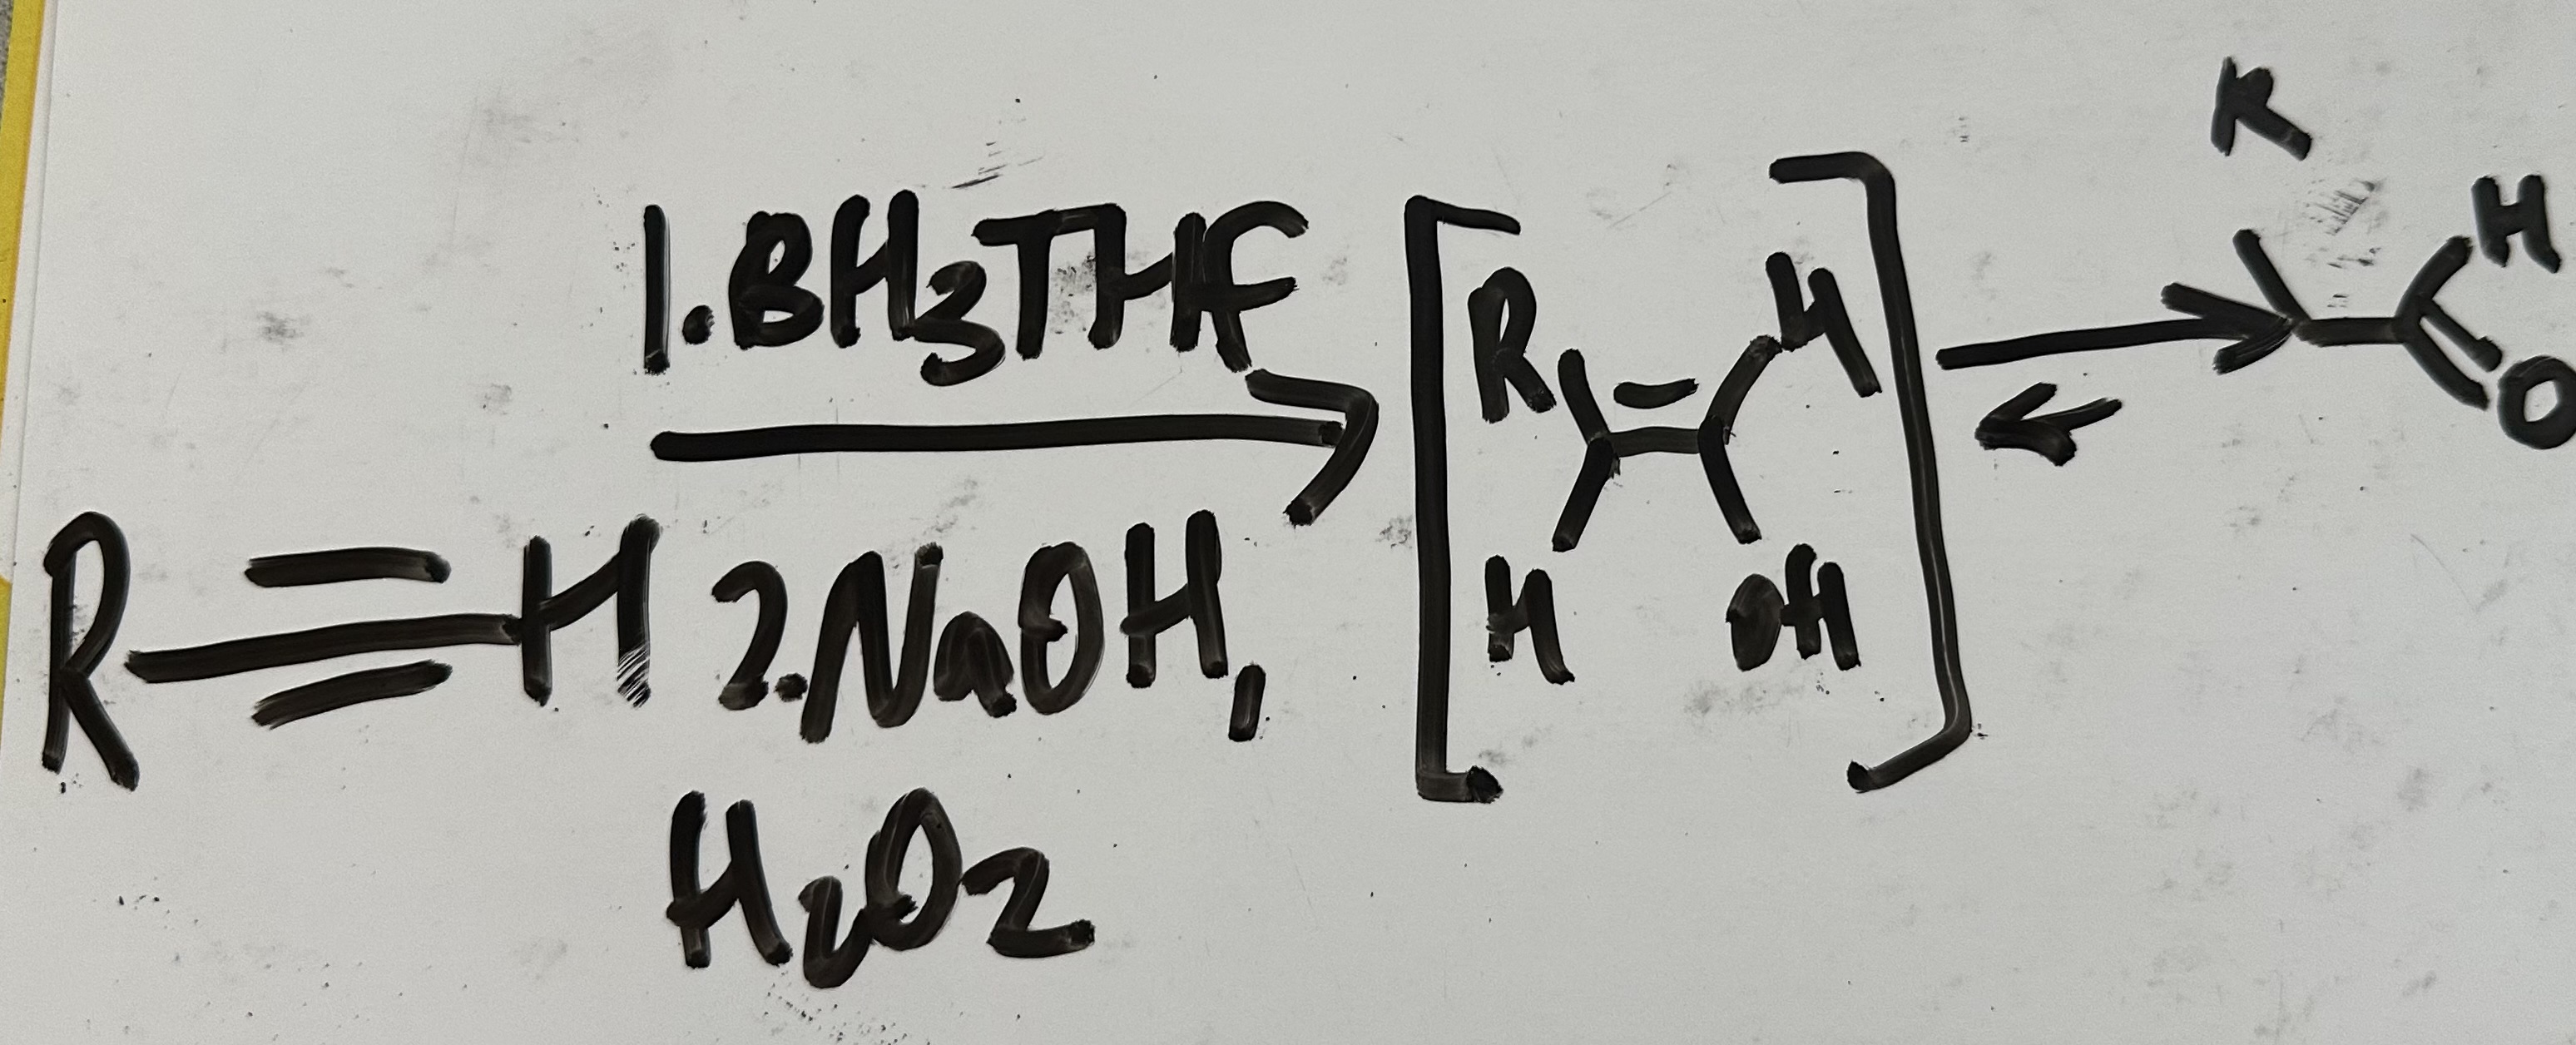 1. BH3THF
R≡H
2. NaOH,
H2O2
R H
H OH
R
H
O